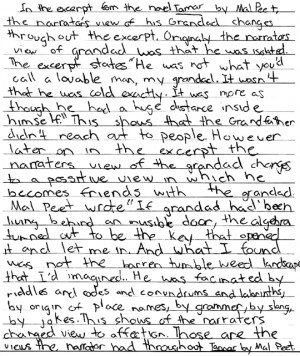 In the excerpt from the novel Tamar by Mal Peet,
the narrator's view of his Grandad changes
throughout the excerpt. Originaly the narrators
view of grandad was that he was isolated.
The excerpt states "He was not what you'd
call a lovable man, my grandad. It wasn't
that he was cold exactly. It was more as
though he had a huge distance inside
himself." This shows that the Grandfather
didn't reach out to people. However
later on in the excerpt the
narraters view of the grandad changes
to a possitive view in which he
becomes friends with the grandad.
Mal Peet wrote "If grandad had been
living behind an invsible door, the algebra
turned out to be the key that opened
it and let me in. And what I found
was not the barren tumble weed landscape
that I'd imagined.. He was facinated by
riddles and codes and conundrums and labarinths,
by origin of place names, by grammer, by slang,
by jokes. This shows of the narraters
changed view to affection. Those are the
views the narrator had throughout Tamar by Mal Peet.